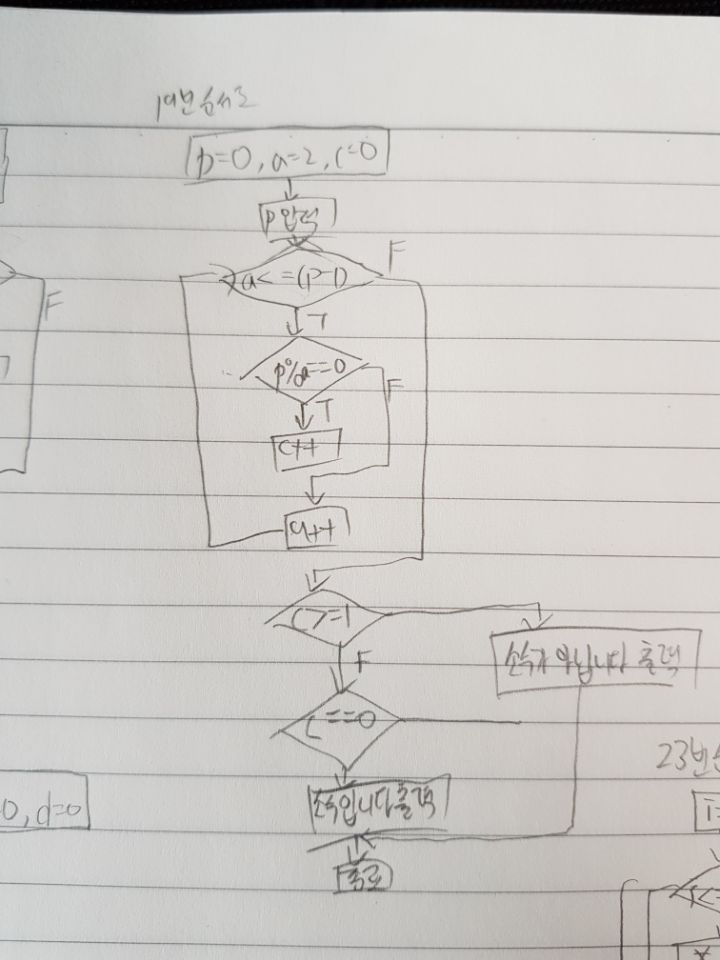 19번 순서도
p=0, a=2, c=0
p입력
F
a<=(p-1)
F
T
p%a==0
F
T
c++
a++
c>=1
소수가 아닙니다 출력
F
c==0
23번
소수입니다 출력
0, d=0
종료